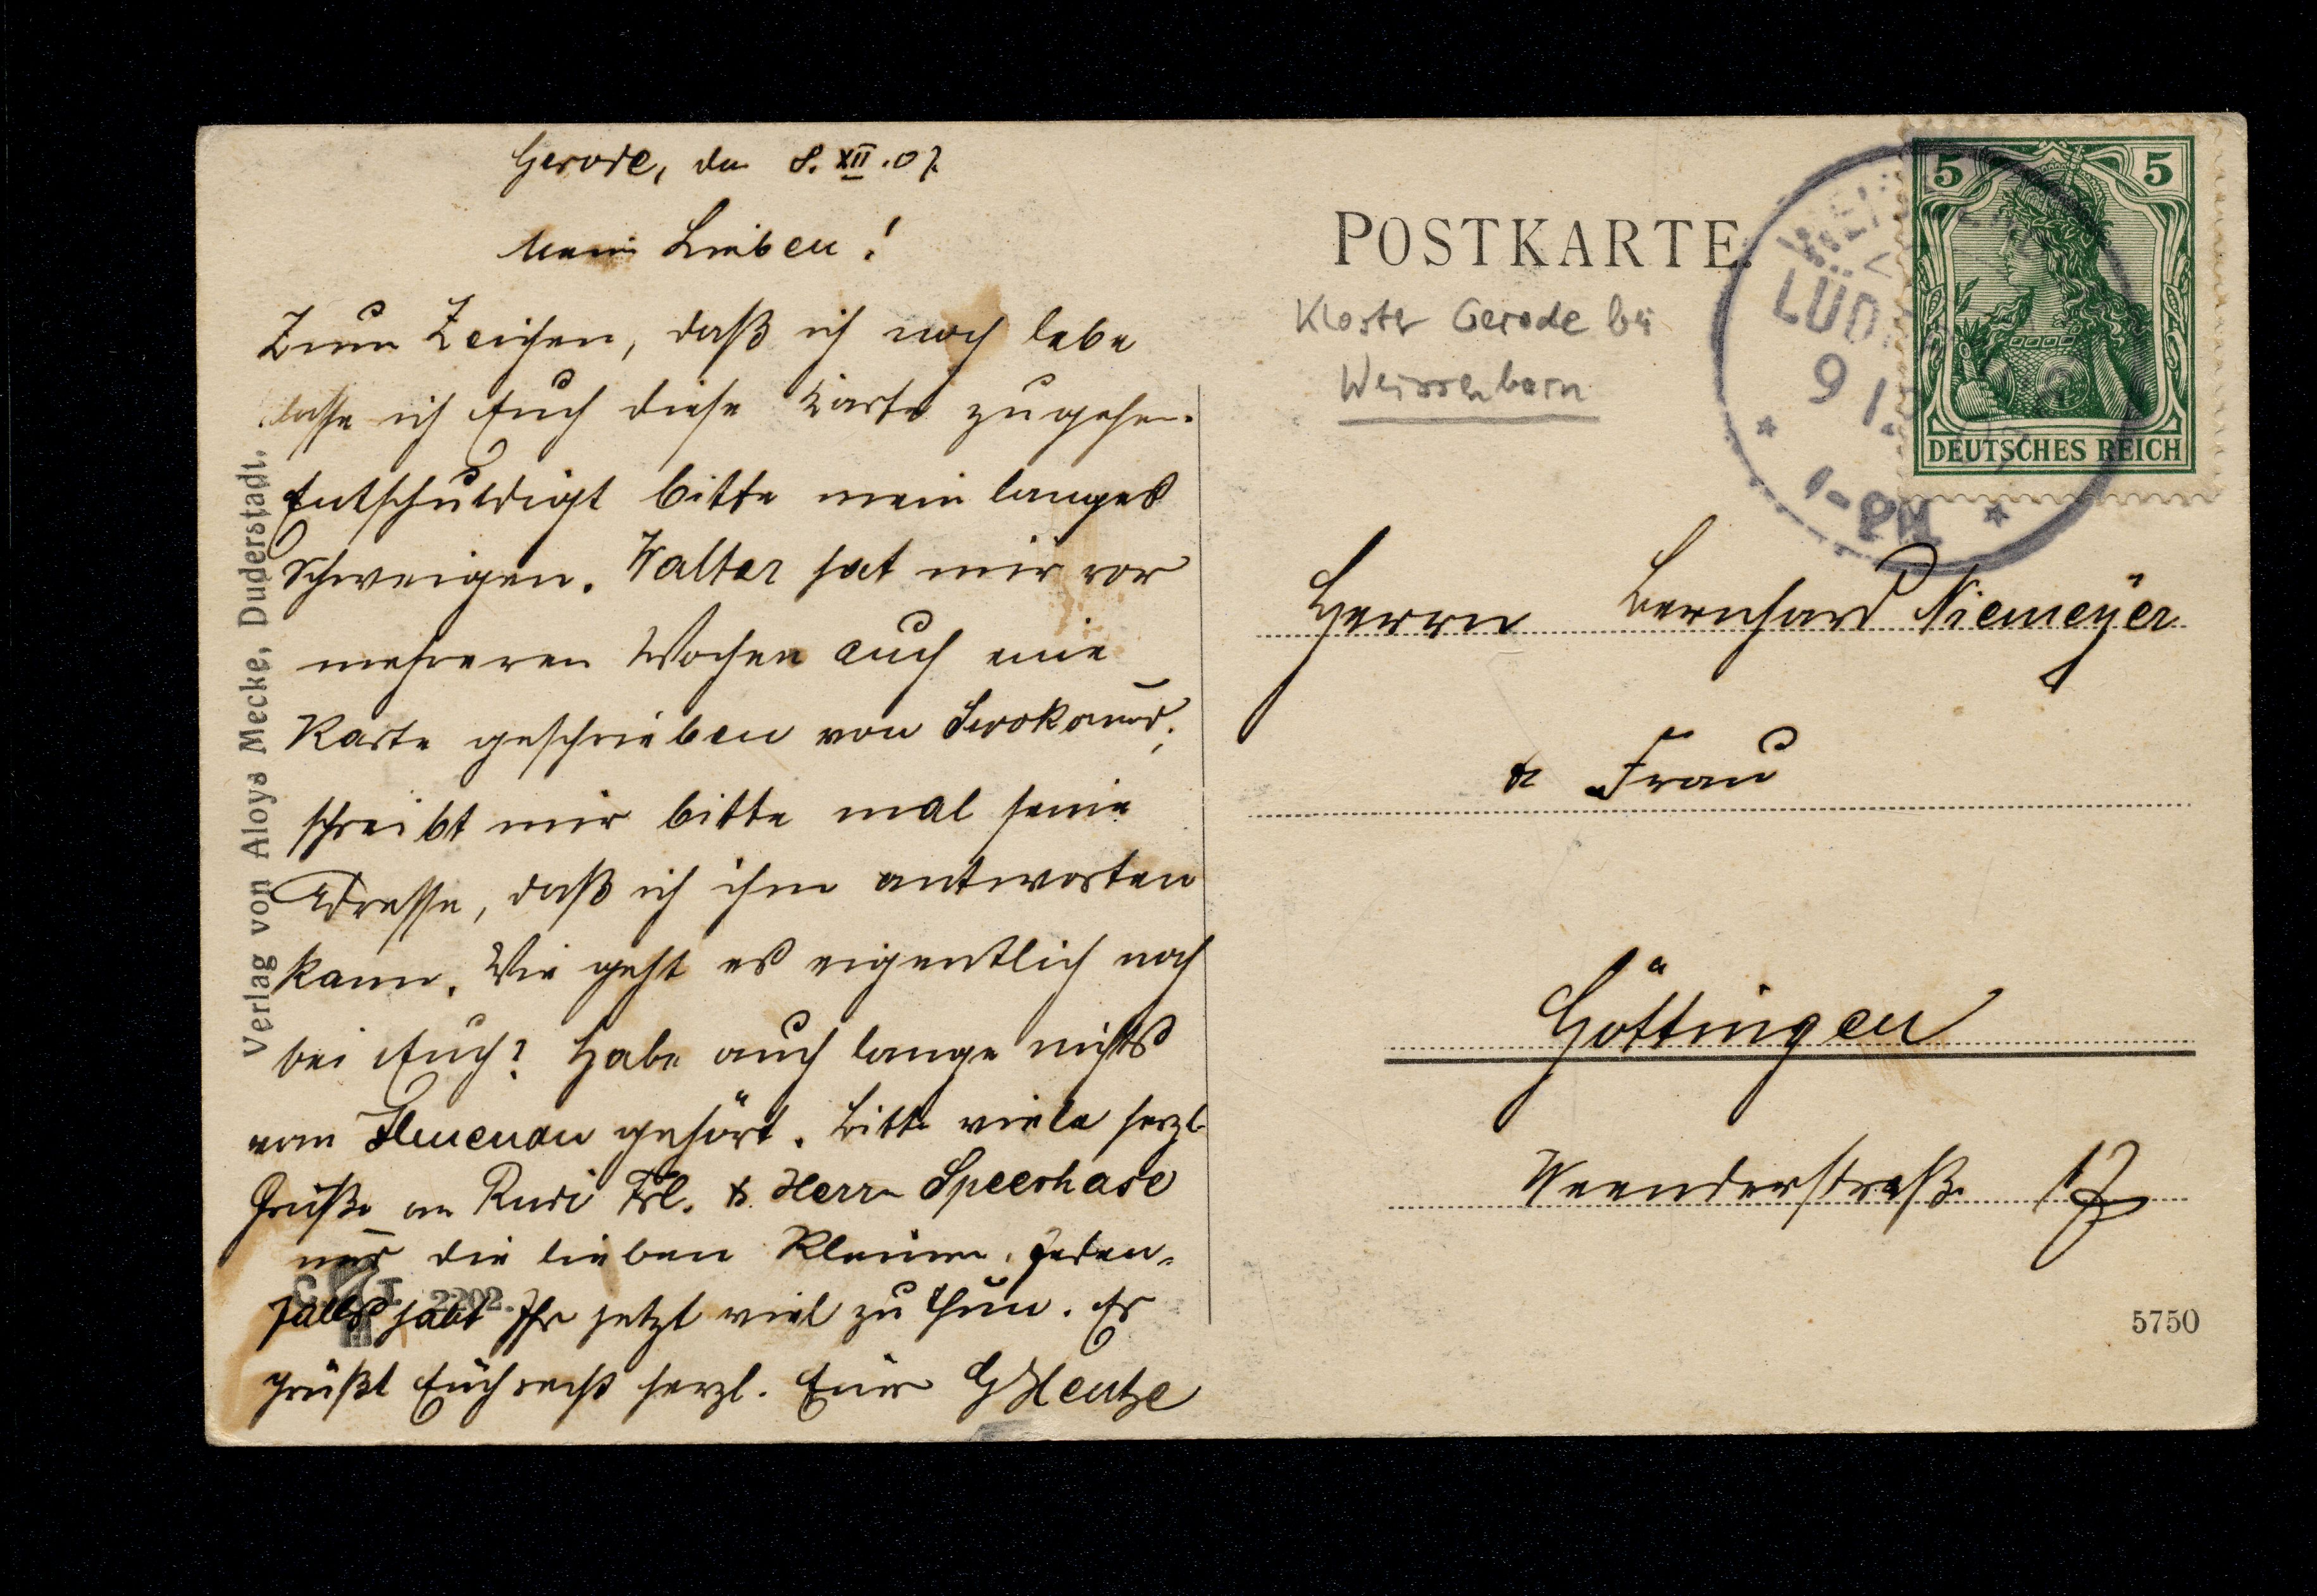 Gerode, den 8. XII. 07.
Meine Lieben!
Zum Zeichen, daß ich noch lebe
lasse ich Euch diese Karte zugehen.
Entschuldigt bitte mein langes
Schweigen. Walter hat mir vor
mehreren Wochen auch eine
Karte geschrieben von
schreibt mir bitte mal seine
Adresse, daß ich ihm antworten
kann. Wie geht es eigentlich noch
bei Euch? Habe auch lange nichts
von Ilmenau gehört. Bitte viele herzl.
Grüße an Rudi Frl. & Herrn Speerhase
und die lieben Kleinen. Jeden-
falls habt Ihr jetzt viel zu thun. Es
grüßt Euch recht herzl. Euer GHentze
Verlag von Aloys Mecke, Duderstadt.
2202.
POSTKARTE.
Kloster Gerode bei
Weissenborn
5 5
DEUTSCHES REICH
LÜD
9 12
1-8N
Herrn Bernhard Niemeÿer
& Frau
Göttingen
Weenderstraße 17
5750